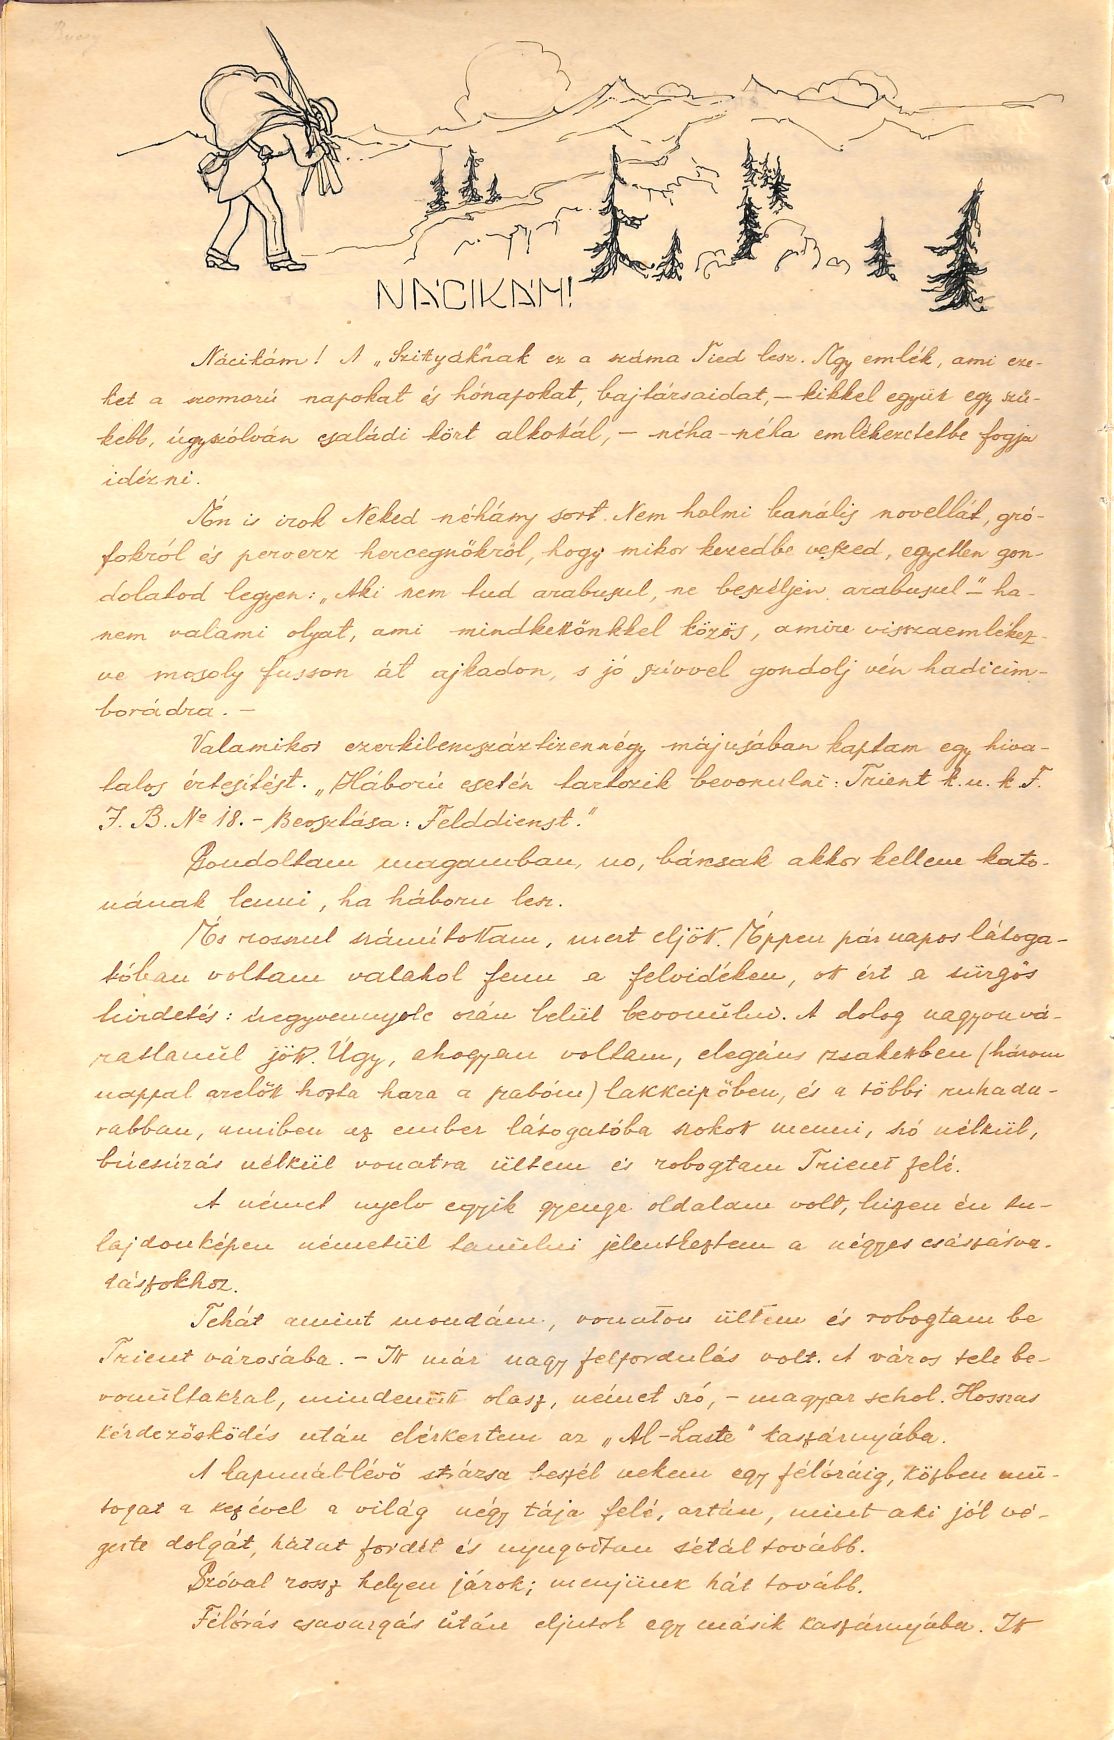 NÁCIKÁM!
Nácikám! A „Szittyák"nak ez a száma Tied lesz. Egy emlék, ami eze-
ket a szomorú napokat és hónapokat, bajtársaidat, – kikkel együtt egy szű-
kebb, úgyszólván családi kört alkottál, – néha-néha emlékezetedbe fogja
idézni.
Én is irok Neked néhány sort. Nem holmi banális novellát, gró-
fokról és perverz hercegnőkről, hogy mikor kezedbe veszed, egyetlen gon-
dolatod legyen: „Aki nem tud arabusul, ne beszéljen arabusul" – ha-
nem valami olyat, ami mindkettőnkkel közös, amire visszaemlékez-
ve mosoly fusson át ajkadon, s jó szivvel gondolj vén hadicim-
borádra. –
Valamikor ezerkilencszáztizennégy májusában kaptam egy hiva-
talos értesitést. „Háború esetén tartozik bevonulni: Trient k.u.k. F.
J. B. No 18. – Beosztása: Felddienst."
Gondoltam magamban, no, báncsak akkor kellene kato-
nának lenni, ha háboru lesz.
És rosszul számítottam, mert eljött. Éppen pár napos látoga-
tóban voltam valahol fenn a felvidéken, ott ért a sürgős
hirdetés: negyvennyolc órán belül bevonúlni. A dolog nagyon vá-
ratlanúl jött. Úgy, ahogyan voltam, elegáns zsakettben (három
nappal azelőtt hozta haza a szabóm) lakkcipőben, és a többi ruhada-
rabban, amiben az ember látogatóba szokott menni, szó nélkül,
búcsúzás nélkül vonatra ültem és robogtam Trient felé.
A német nyelv egyik gyenge oldalam volt, hiszen én tu-
lajdonképen németül tanúlni jelentkeztem a négyes császárva-
dászokhoz.
Tehát amint mondám, vonaton ültem és robogtam be
Trient városába. – Itt már nagy felfordulás volt. A város tele be-
vonúltakkal, mindenütt olasz, német szó, – magyar sehol. Hosszas
kérdezősködés után elérkeztem az „Al-Laste" kaszárnyába.
A kapunál lévő strázsa beszél nekem egy félóráig, közben mu-
togat a kezével a világ négy tája felé, aztán, mint aki jól vé-
gezte dolgát, hátat fordít és nyugodtan sétál tovább.
Szóval rossz helyen járok; menjünk hát tovább.
Félórás csavargás után eljutok egy másik kaszárnyába. Itt